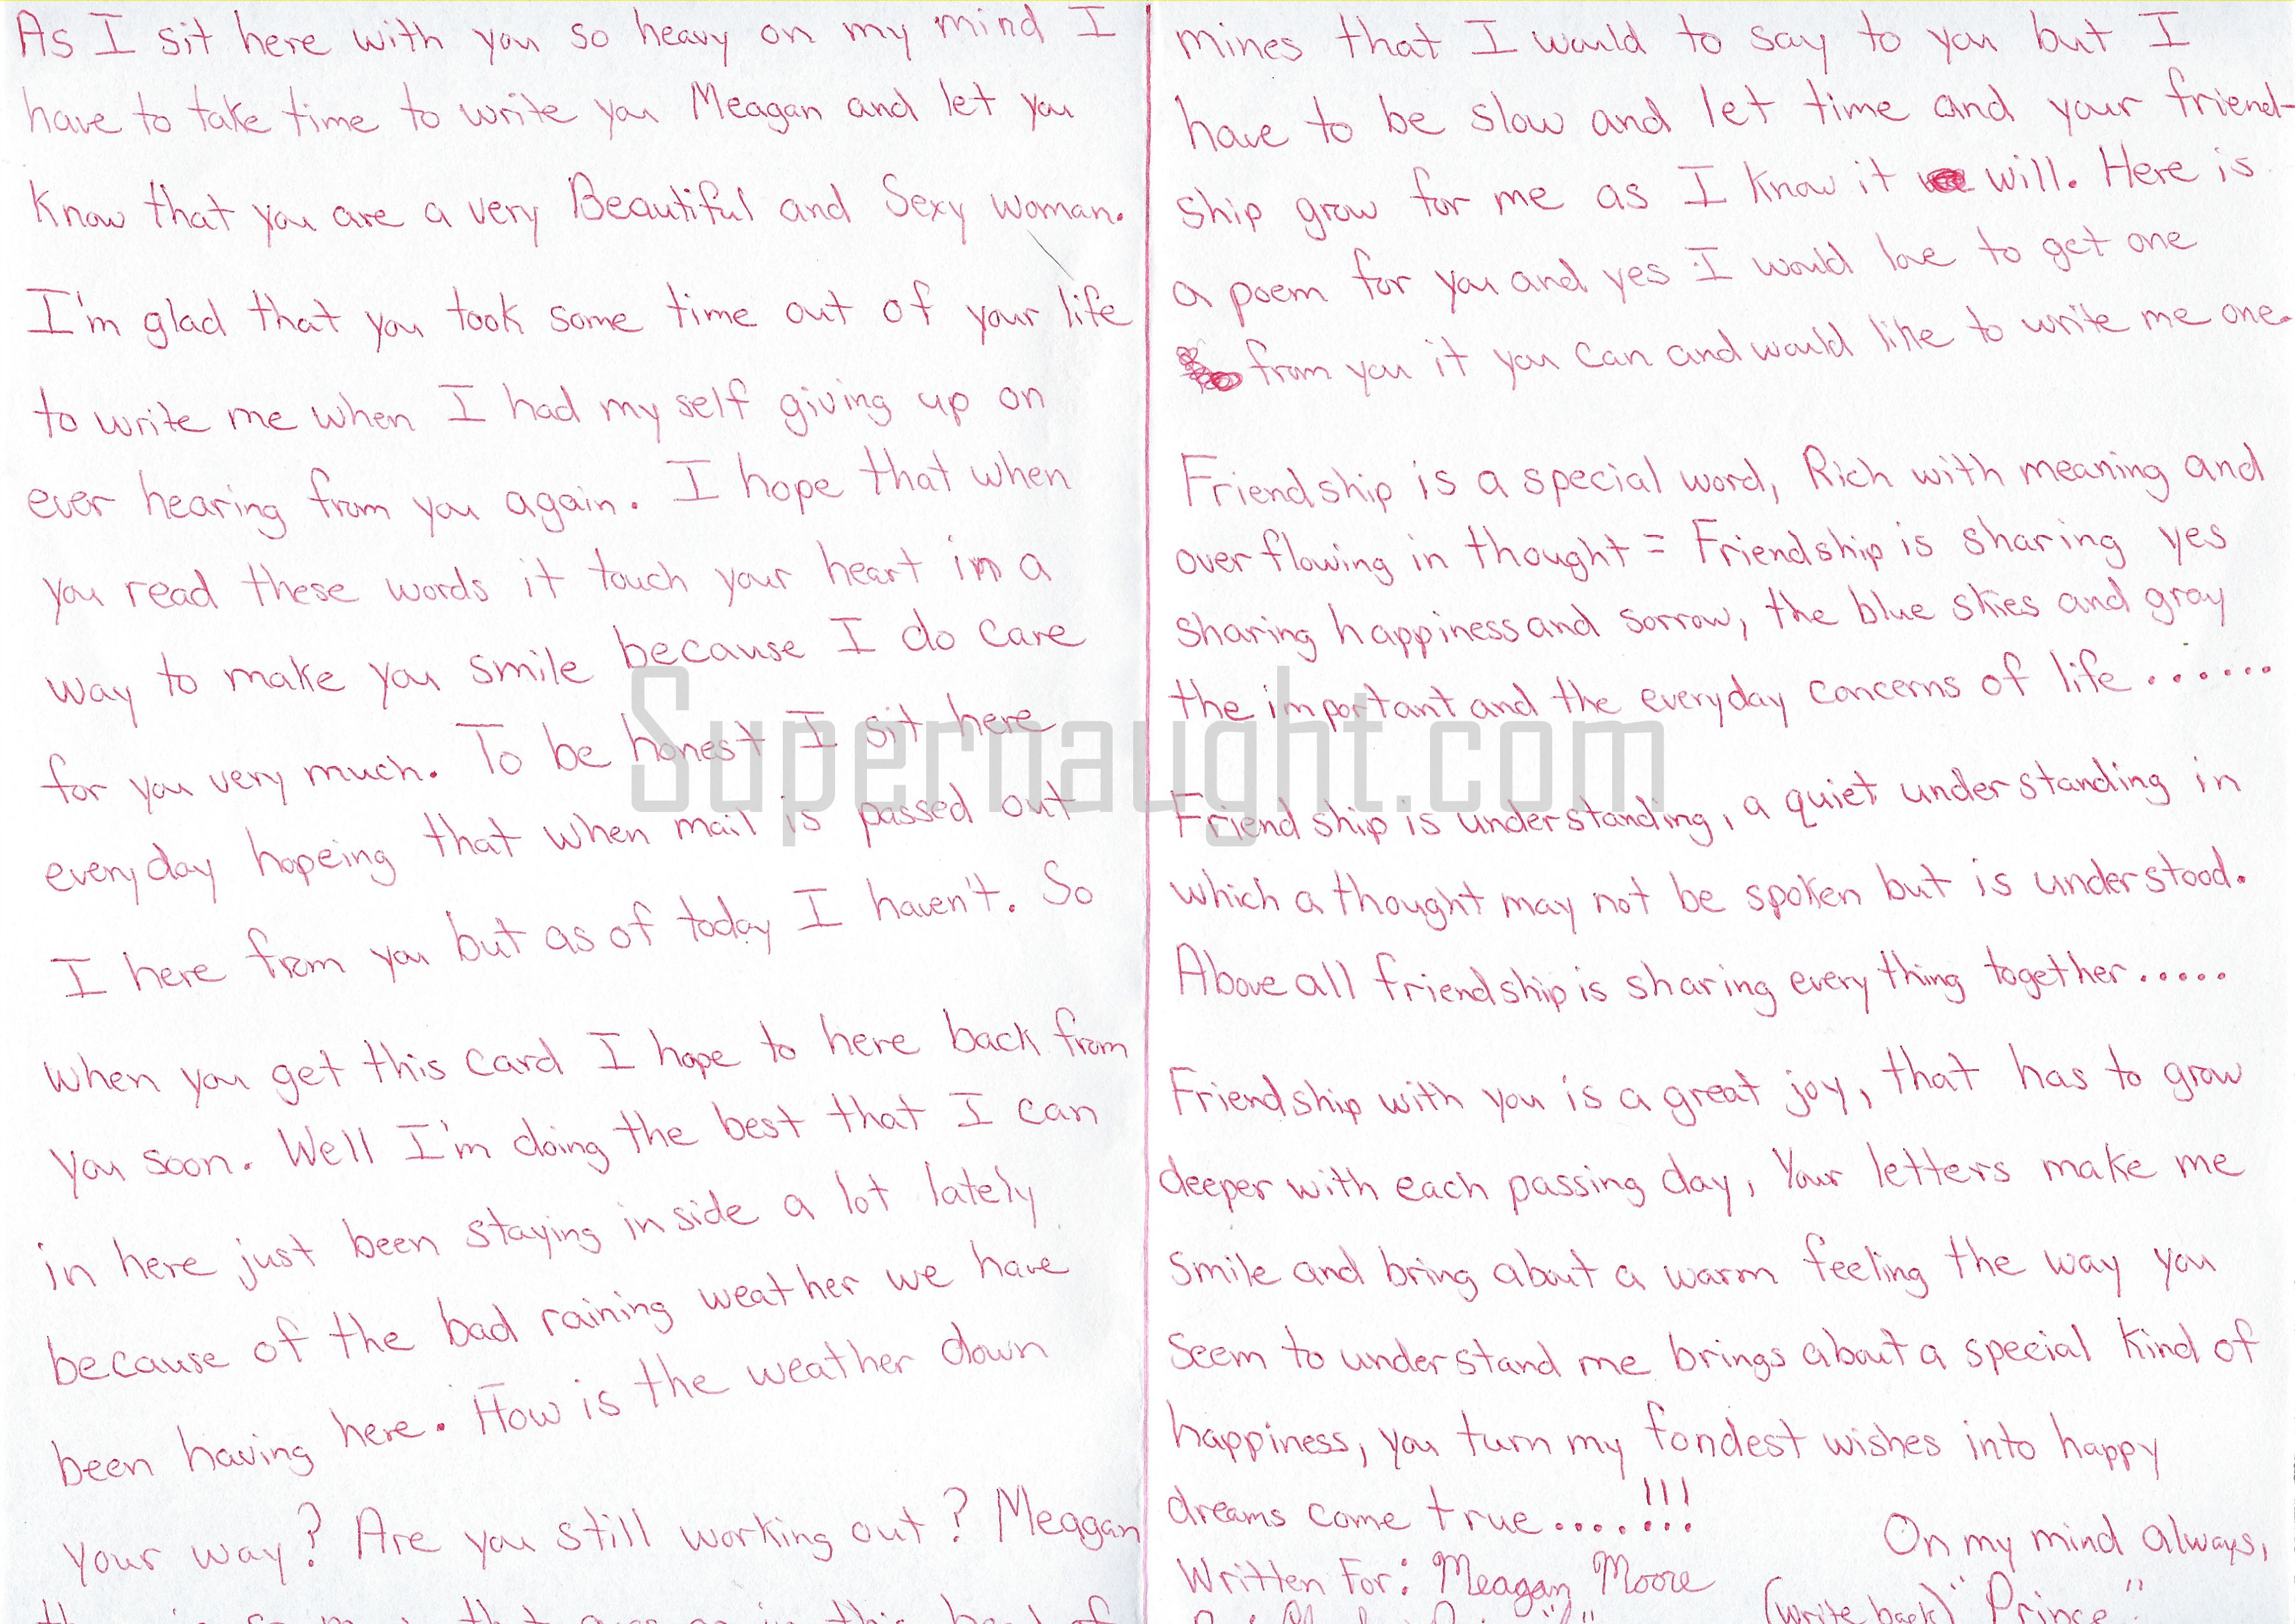 As I sit here with you so heavy on my mind I
have to take time to write you Meagan and let you
know that you are a very Beautiful and Sexy woman.
I'm glad that you took some time out of your life
to write me when I had my self giving up on
ever hearing from you again. I hope that when
you read these words it touch your heart in a
way to make you smile because I do care
for you very much. To be honest I sit here
everyday hopeing that when mail is passed out
I here from you but as of today I haven't. So
when you get this card I hope to here back from
you soon. Well I'm doing the best that I can
in here just been staying inside a lot lately
because of the bad raining weather we have
been having here. How is the weather down
your way? Are you still working out? Meagan
mines that I would to say to you but I
have to be slow and let time and your friend-
ship grow for me as I know it will. Here is
a poem for you and yes I would love to get one
from you it you can and would like to write me one.
Friendship is a special word, Rich with meaning and
over flowing in thought = Friendship is sharing yes
sharing happiness and sorrow, the blue skies and gray
the important and the everyday concerns of life.......
Friendship is understanding, a quiet understanding in
which a thought may not be spoken but is understood.
Above all friendship is sharing every thing together.....
Friendship with you is a great joy, that has to grow
deeper with each passing day, Your letters make me
smile and bring about a warm feeling the way you
seem to understand me brings about a special kind of
happiness, you turn my fondest wishes into happy
dreams come true....!!!
On my mind always,
Written For: Meagan Moore
(write back) "Prince"
Supernaught.com